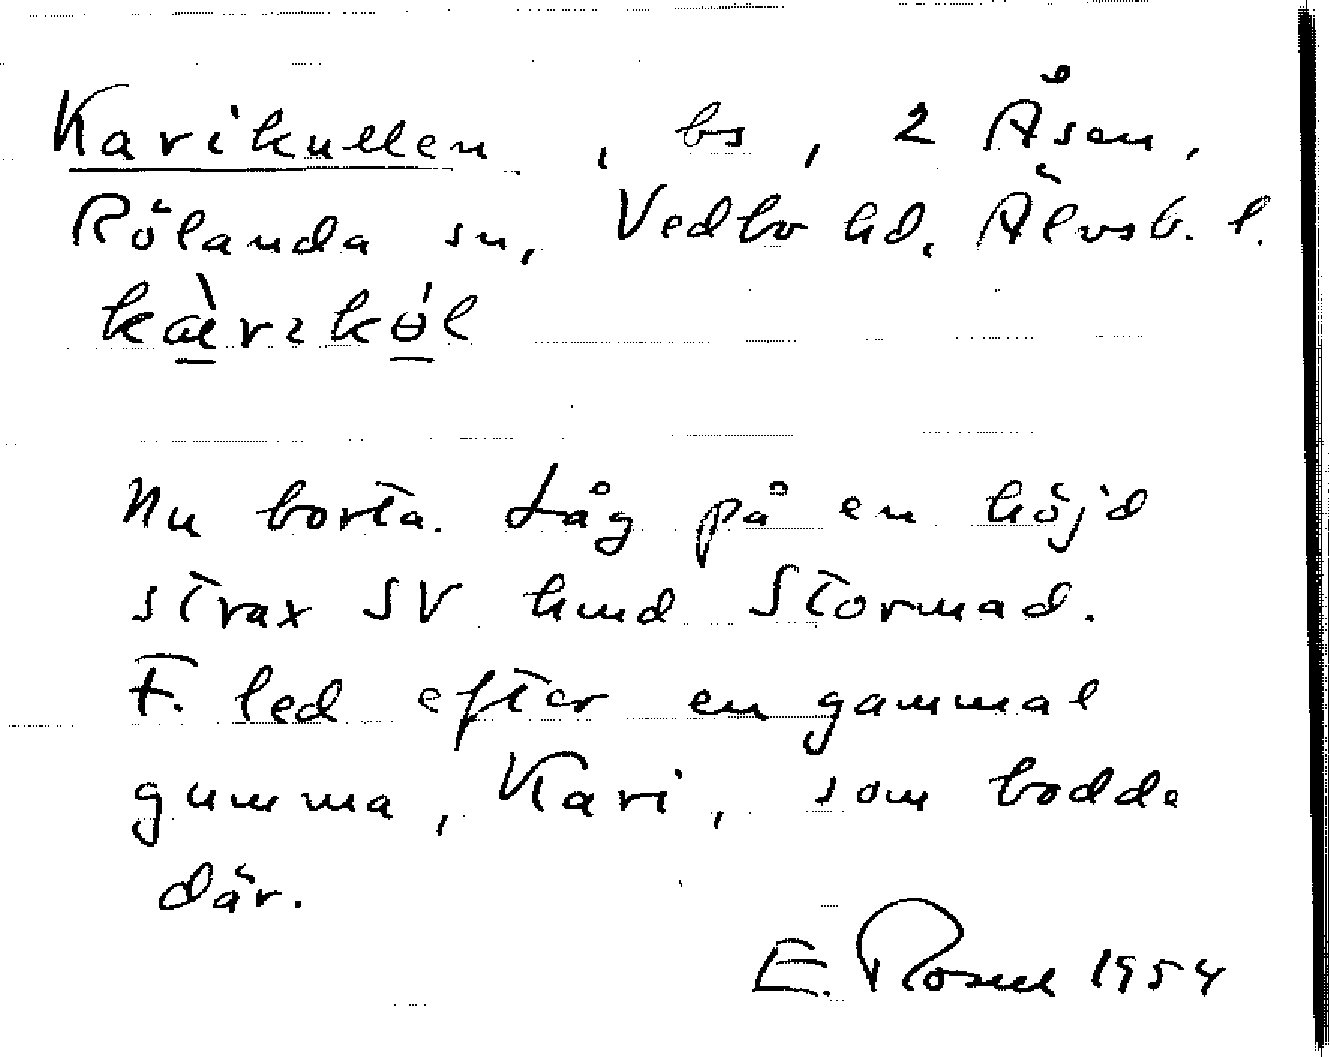 Karikullen, bs, 2 Åsen,
Rölanda sn, Vedbo hd, Älvsb. l.
Nu borta. Låg på en höjd
strax SV hmd Stormad.
F. led efter en gammal
gumma, Kari, som bodde
där.
E. Rosell 1954